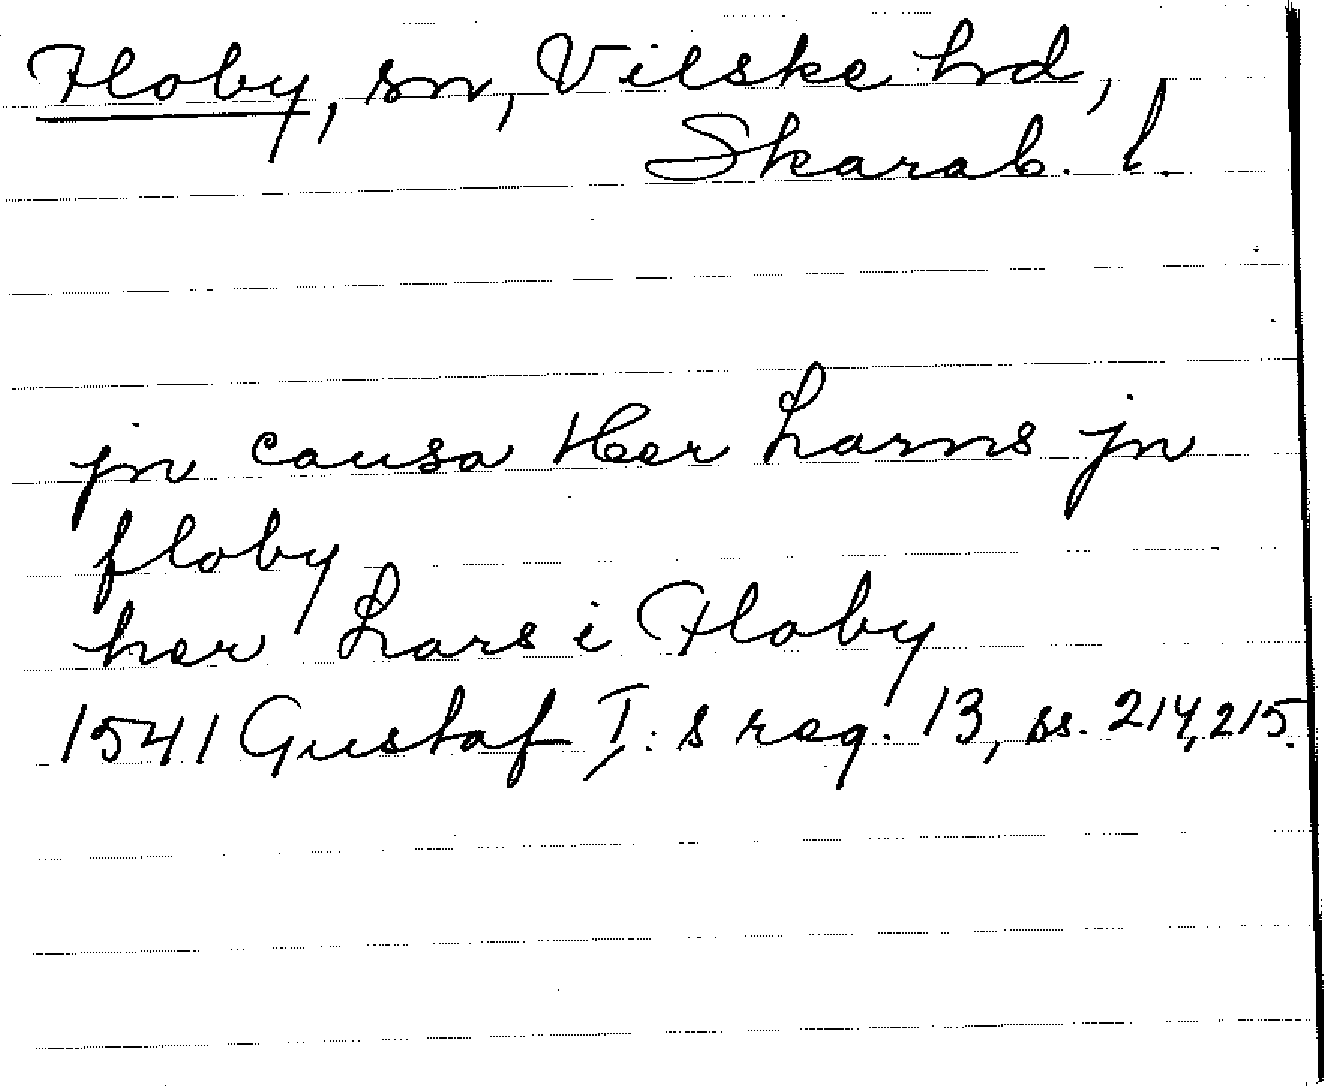 Floby, sn, Vilske hrd,
Skarab. l.
jn causa Her Larns jn
floby
her Lars i Floby
1541 Gustaf I:s reg. 13, ss. 214, 215.